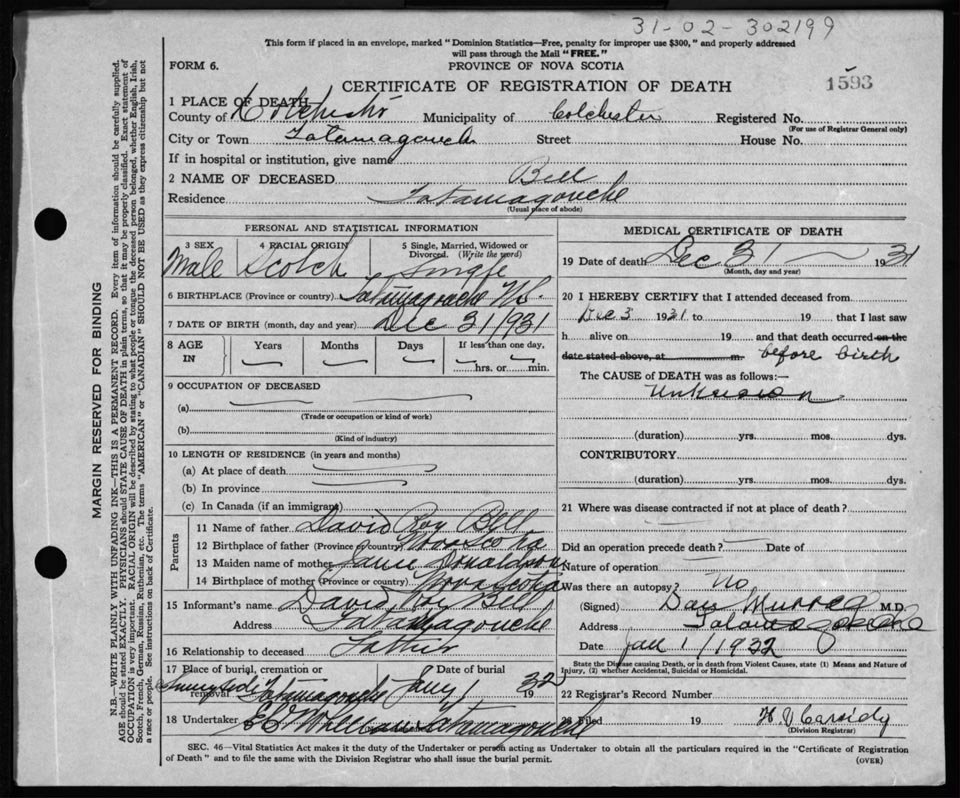 31-02-302199
This form if placed in an envelope, marked "Dominion Statistics—Free, penalty for improper use $300," and properly addressed
will pass through the Mail "FREE."
FORM 6.
PROVINCE OF NOVA SCOTIA
CERTIFICATE OF REGISTRATION OF DEATH
1593
1 PLACE OF DEATH
County of Colchester Municipality of Colchester Registered No.
(For use of Registrar General only)
City or Town Tatamagouche Street House No.
If in hospital or institution, give name
2 NAME OF DECEASED Bell
Residence Tatamagouche
(Usual place of abode)
PERSONAL AND STATISTICAL INFORMATION
3 SEX 4 RACIAL ORIGIN 5 Single, Married, Widowed or Divorced. (Write the word)
Male Scotch Single
6 BIRTHPLACE (Province or country) Tatamagouche N.S.
7 DATE OF BIRTH (month, day and year) Dec 31/931
8 AGE IN Years Months Days If less than one day, hrs. or min.
9 OCCUPATION OF DECEASED
(a)
(Trade or occupation or kind of work)
(b)
(Kind of industry)
10 LENGTH OF RESIDENCE (in years and months)
(a) At place of death
(b) In province
(c) In Canada (if an immigrant)
Parents
11 Name of father David Roy Bell
12 Birthplace of father (Province or country) Nova Scotia
13 Maiden name of mother Donaldson
14 Birthplace of mother (Province or country) Nova Scotia
15 Informant's name David Roy Bell
Address Tatamagouche
16 Relationship to deceased Father
17 Place of burial, cremation or removal Tatamagouche Date of burial Jany 1 1932
18 Undertaker Tatamagouche
MEDICAL CERTIFICATE OF DEATH
19 Date of death Dec 31 1931
(Month, day and year)
20 I HEREBY CERTIFY that I attended deceased from
Dec 3 1931 to 19 that I last saw
h alive on 19 and that death occurred on the
date stated above, at m. before birth
The CAUSE OF DEATH was as follows:—
Unknown
(duration) yrs. mos. dys.
CONTRIBUTORY
(duration) yrs. mos. dys.
21 Where was disease contracted if not at place of death?
Did an operation precede death? Date of
Nature of operation
Was there an autopsy? No
(Signed) Dan Murray M.D.
Address Tatamagouche
Date Jan 1/1932
State the Disease causing Death, or in death from Violent Causes, state (1) Means and Nature of
Injury, (2) whether Accidental, Suicidal or Homicidal.
22 Registrar's Record Number
23 Filed 19 H V Cassidy
(Division Registrar)
SEC. 46—Vital Statistics Act makes it the duty of the Undertaker or person acting as Undertaker to obtain all the particulars required in the "Certificate of Registration
of Death" and to file the same with the Division Registrar who shall issue the burial permit. (OVER)
MARGIN RESERVED FOR BINDING
N.B.—WRITE PLAINLY WITH UNFADING INK—THIS IS A PERMANENT RECORD. Every item of information should be carefully supplied.
AGE should be stated EXACTLY. PHYSICIANS should STATE CAUSE OF DEATH in plain terms, so that it may be properly classified. Exact statement of
OCCUPATION is very important. RACIAL ORIGIN will be described by stating to what people or tongue the deceased person belonged, whether English, Irish,
Scotch, French, German, Russian, Ruthenian, etc. The terms "AMERICAN" or "CANADIAN" SHOULD NOT BE USED as they express citizenship but not
a race or people. See instructions on back of Certificate.